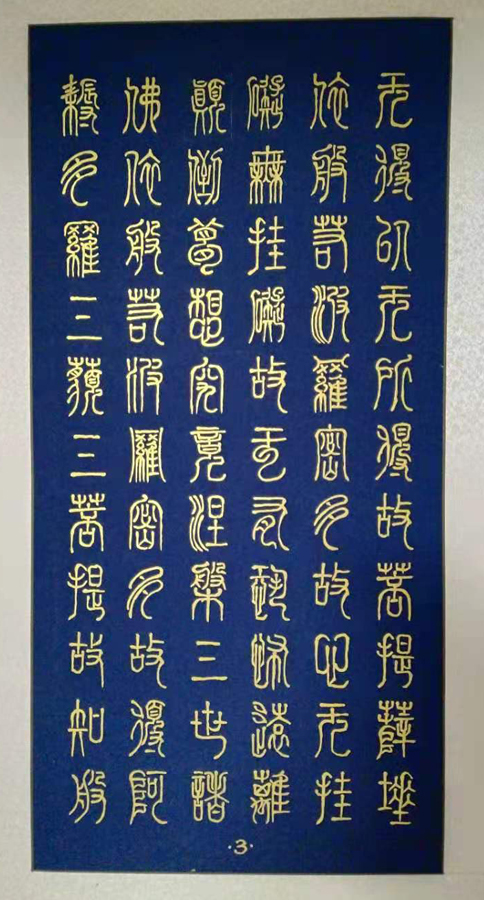 无得以无所得故菩提薩埵
依般若波羅密多故心无挂
礙無挂礙故无有恐怖遠離
顛倒夢想究竟涅槃三世諸
佛依般若波羅密多故得阿
耨多羅三藐三菩提故知般
·3·